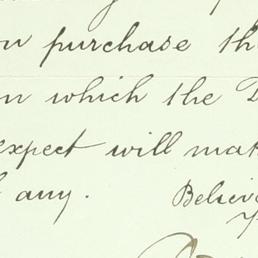 purchase
on which the
expect will
any.
Believe